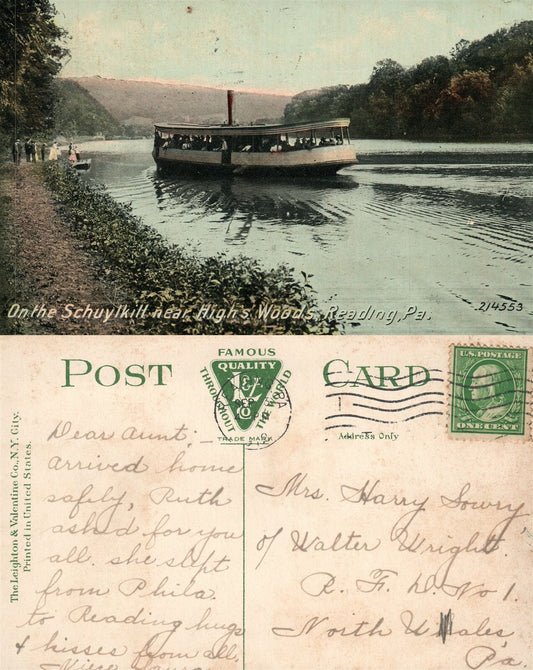 On the Schuylkill near High's Woods, Reading, Pa.
214553
POST
FAMOUS
QUALITY
THROUGHOUT
THE WORLD
L&V
Co
TRADE MARK
CARD
Address Only
U.S. POSTAGE
ONE CENT
The Leighton & Valentine Co., N.Y. City.
Printed in United States.
Dear Aunt; -
arrived home
safely, Ruth
asked for you
all. she slept
from Phila.
to Reading hugs
& kisses from all,
Mrs. Harry Lowry
of Walter Wright.
R. F. D. No 1.
North Wales
Pa.